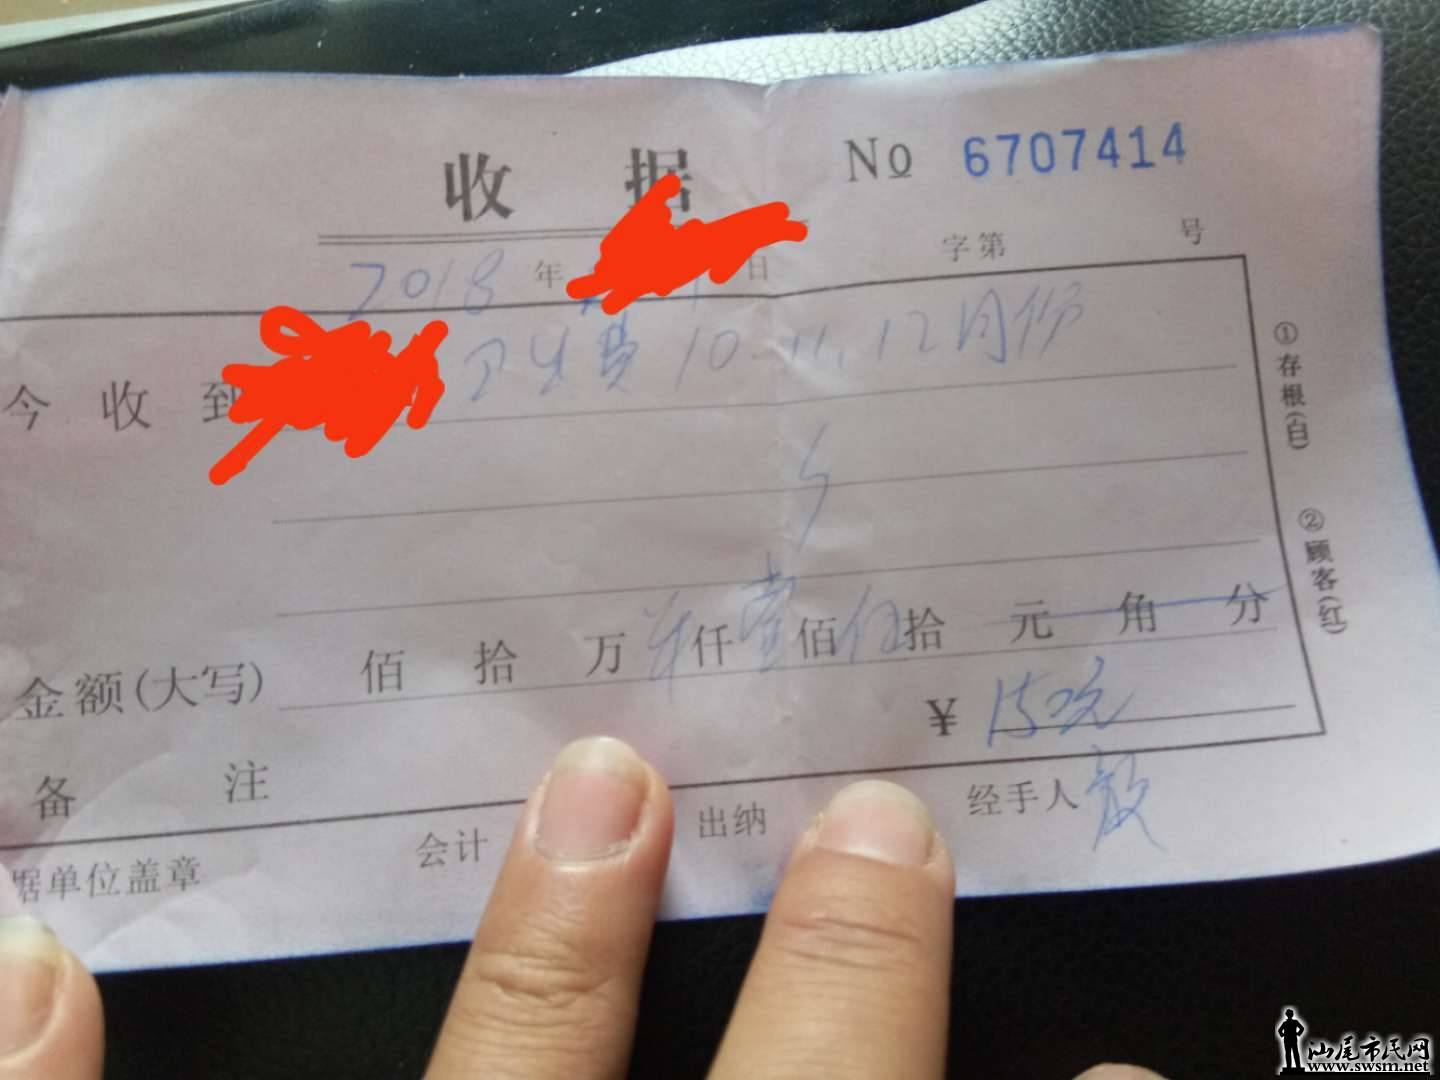 收 据 No 6707414
2018 年 日 字第 号
今收到 卫生费 10-11, 12月份
金额(大写) 佰 拾 万 仟 壹 佰 伍 拾 元 角 分
¥ 150元
备 注
据单位盖章 会计 出纳 经手人
①存根(白)
②顾客(红)
汕尾市民网
www.swsm.net